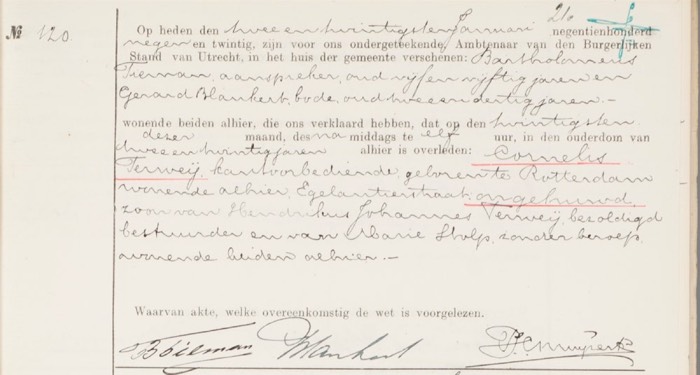 No 120. Op heden den twee en twintigsten Januari negentienhonderd
negen en twintig, zijn voor ons ondergeteekende, Ambtenaar van den Burgerlijken
Stand van Utrecht, in het huis der gemeente verschenen: Bartholomeus
Tieman, aanspreker, oud vijf en vijftig jaren en
Gerard Blankert, bode, oud twee en dertig jaren. —
wonende beiden alhier, die ons verklaard hebben, dat op den twintigsten
dezer maand, des na middags te elf uur, in den ouderdom van
twee en twintig jaren alhier is overleden: Cornelis
Terweij, kantoorbediende, geboren te Rotterdam
wonende alhier, Egelantierstraat, ongehuwd,
zoon van Hendrikus Johannes Terweij, bezoldigd
bestuurder en van Marie Stolp, zonder beroep,
wonende beiden alhier. —
Waarvan akte, welke overeenkomstig de wet is voorgelezen.
BTieman Blankert